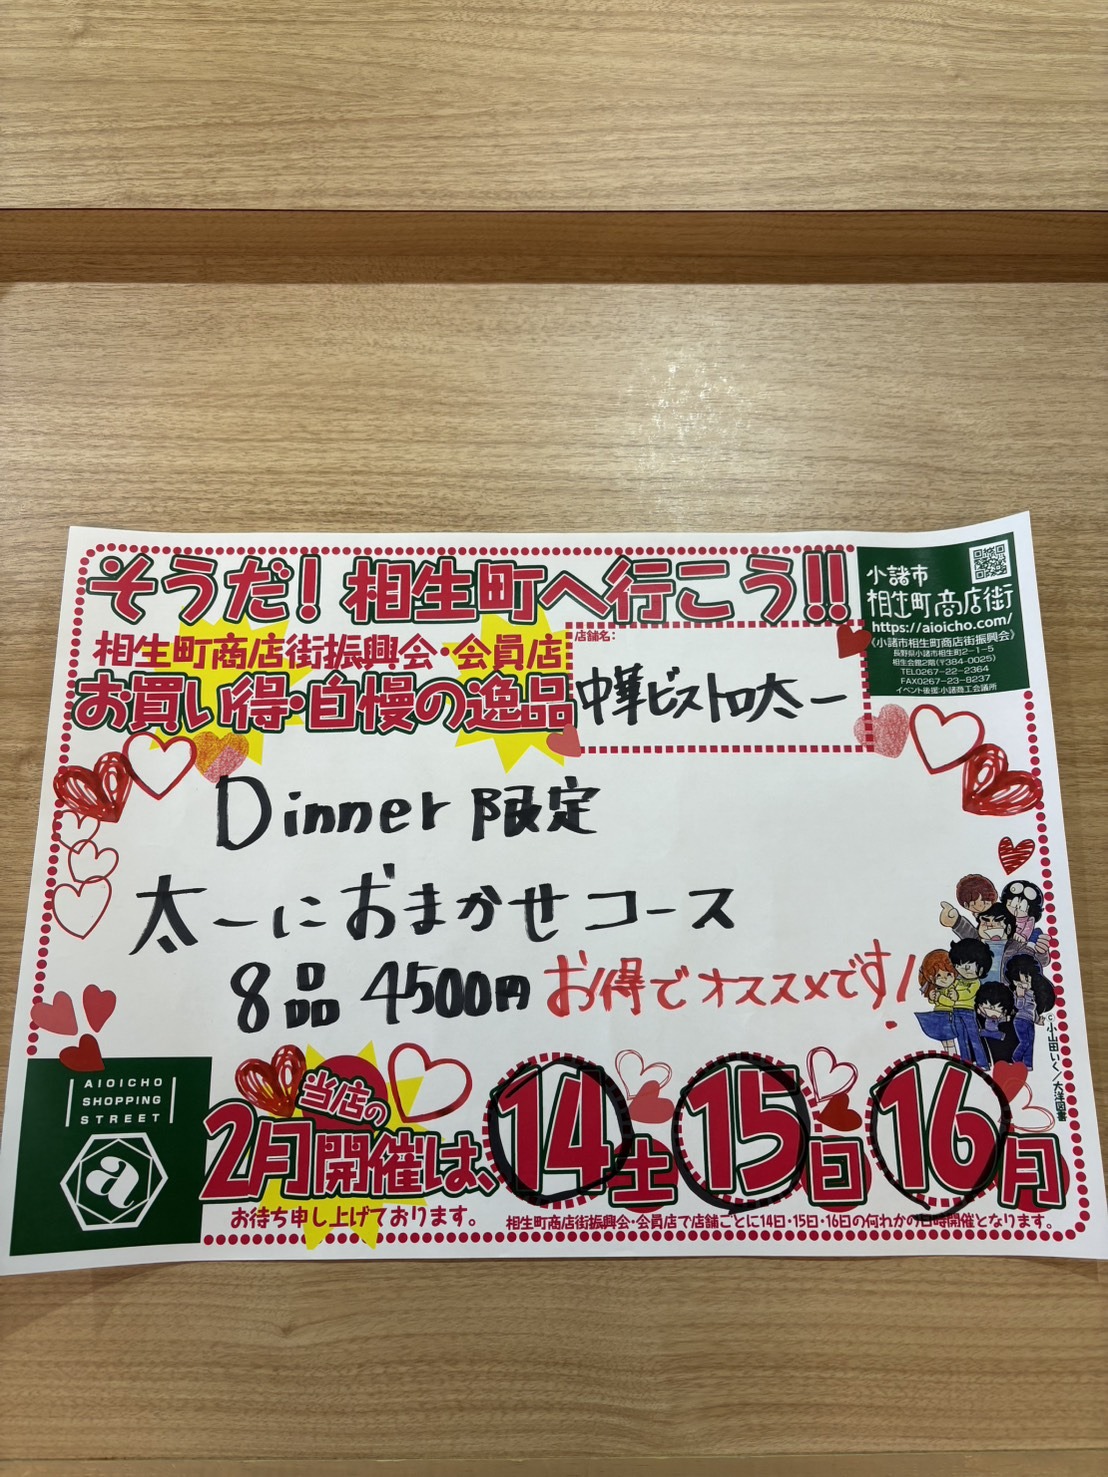 そうだ!相生町へ行こう!!
相生町商店街振興会・会員店
お買い得・自慢の逸品
店舗名:
中華ビストロ太一
小諸市
相生町商店街
https://aioicho.com/
《小諸市相生町商店街振興会》
長野県小諸市相生町2-1-5
相生会館2階(〒384-0025)
TEL0267-22-2364
FAX0267-23-8237
イベント後援:小諸商工会議所
Dinner 限定
太一におまかせコース
8品 4500円 お得でオススメです!
©小山田いく/大洋図書
AIOICHO
SHOPPING
STREET
a
当店の
2月開催は、14土 15日 16月
お待ち申し上げております。
相生町商店街振興会・会員店で店舗ごとに14日・15日・16日の何れかの日時開催となります。